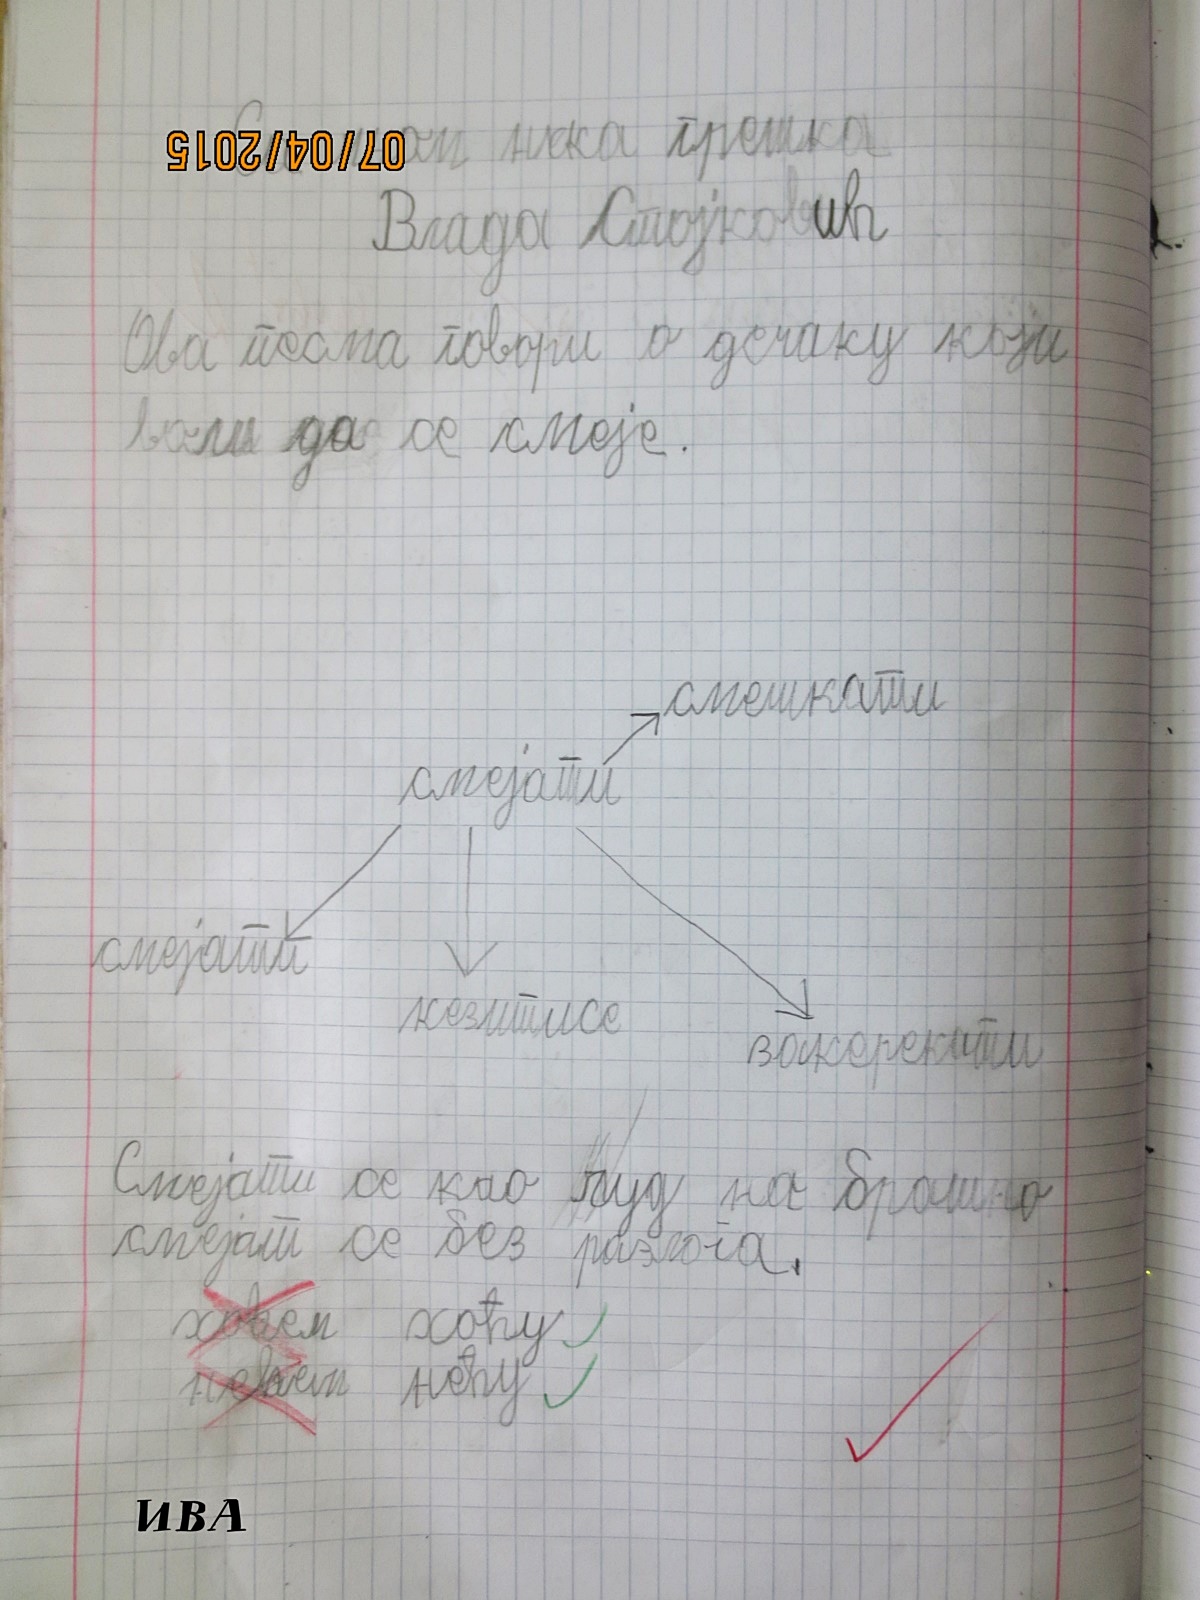 07/04/2015
нека грешка
Влада Стојковић
Ова песма говори о дечаку који
воли да се смеје.
смешкати
смејати
смејати
кезитисе
Смејати се као луд на брашно
смејат се без разлога.
хоћем хоћу
нећем нећу
ИВА